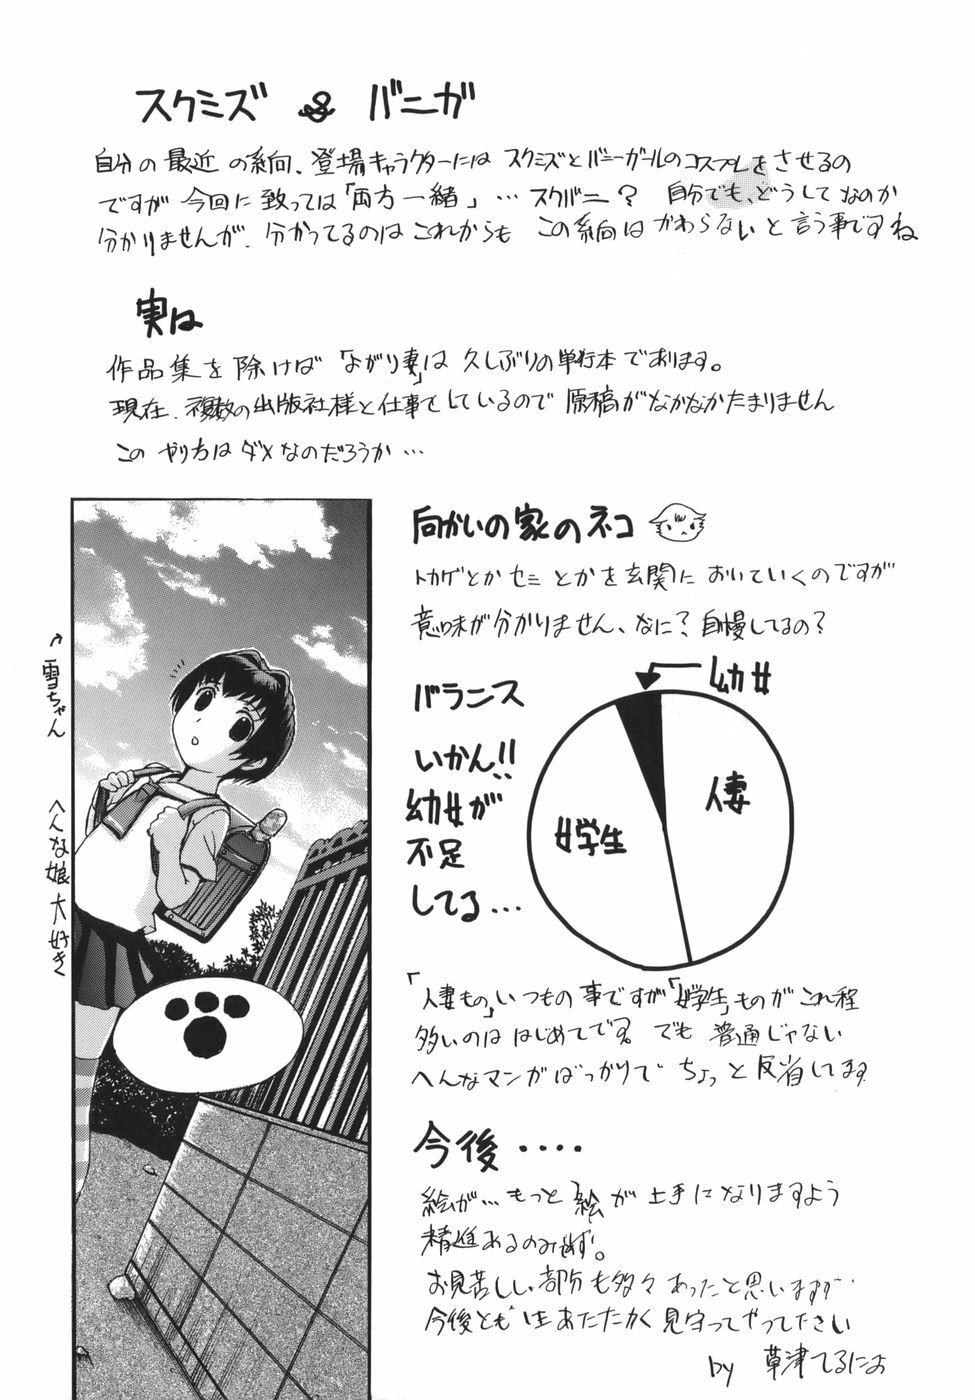 スクミズ & バニガ
自分の最近の系向、登場キャラクターにはスクミズとバニーガールのコスプレをさせるの
ですが今回に致っては「両方一緒」…スクバニ? 自分でも、どうしてなのか
分かりませんが、分かってるのはこれからもこの系向はかわらないと言う事ですね
実は
作品集を除けば「ながり妻」は久しぶりの単行本であります。
現在、複数の出版社様と仕事をしているので原稿がなかなかたまりません
このやり方はダメなのだろうか…
向かいの家のネコ
トカゲとかセミとかを玄関においていくのですが
意味が分かりません、なに?自慢してるの?
雪ちゃん
へんな娘大好き
バランス
いかん!!
幼女が
不足
してる…
幼女
人妻
女学生
「人妻もの」いつもの事ですが「女学生」ものがこれ程
多いのははじめてです。でも普通じゃない
へんなマンガばっかりでちょっと反省してます
今後‥‥
絵が…もっと絵が上手になりますよう
精進あるのみ
お見苦しい部分も多々あったと思いますが
今後ともあたたかく見守ってやって下さい
by 草津てるにょ